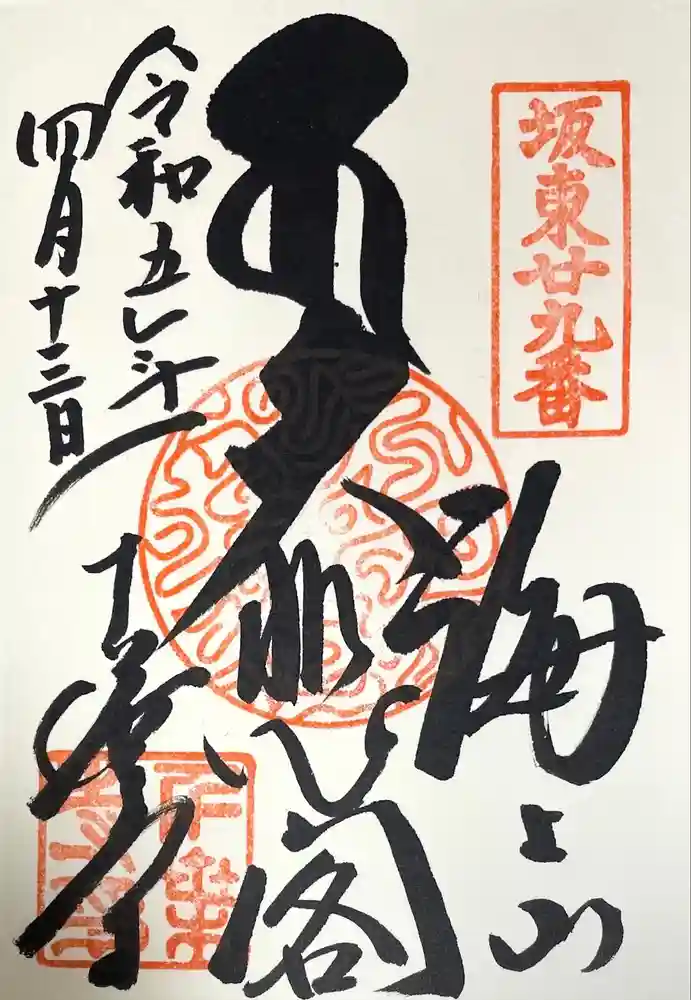 坂東廿九番
海上山
大悲閣
千葉寺
令和五年
四月十三日